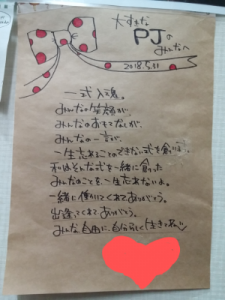 大すきな
PJの
みんなへ
2018.5.11
一式入魂。
みんなの笑顔が、
みんなのおもてなしが、
みんなの一言が、
一生忘れることのできない式を創り
私はそんな式を一緒に創った
みんなのことを一生忘れないよ。
一緒に働いてくれてありがとう。
出逢ってくれてありがとう。
みんな自由に、自分らしく生きてね